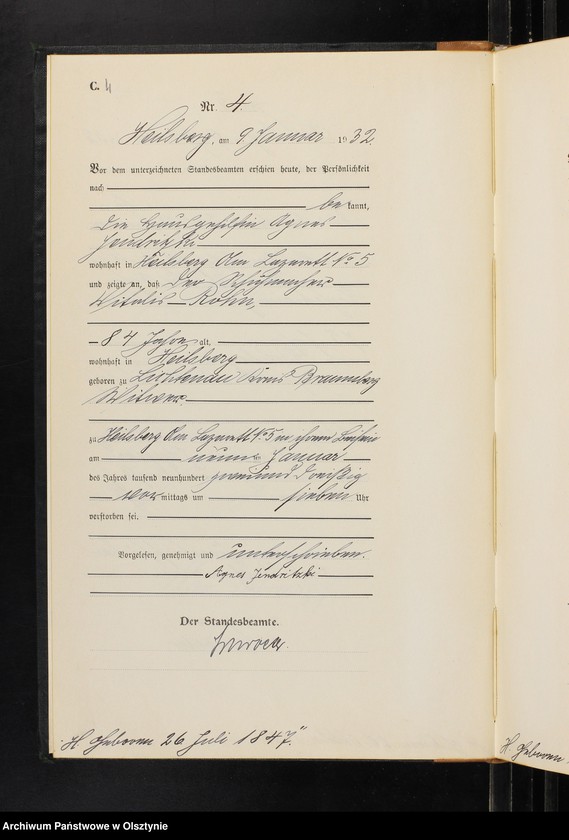 C. 4
Nr. 4.
Heilsberg, am 9 Januar 1932.
Vor dem unterzeichneten Standesbeamten erschien heute, der Persönlichkeit
nach
bekannt,
die Hausgehilfin Agnes
Jendritzki
wohnhaft in Heilsberg Am Lazarett No 5
und zeigte an, daß der Schuhmacher
Vitalis Rohn,
84 Jahre alt,
wohnhaft in Heilsberg
geboren zu Lichtenau Kreis Braunsberg
Witwer
zu Heilsberg Am Lazarett No 5 in ihrem Beisein
am neunten Januar
des Jahres tausend neunhundert zweiunddreißig
vormittags um sieben Uhr
verstorben sei.
Vorgelesen, genehmigt und unterschrieben.
Agnes Jendritzki
Der Standesbeamte.
H. Geboren 26 Juli 1847."
H. Geboren
Archiwum Państwowe w Olsztynie